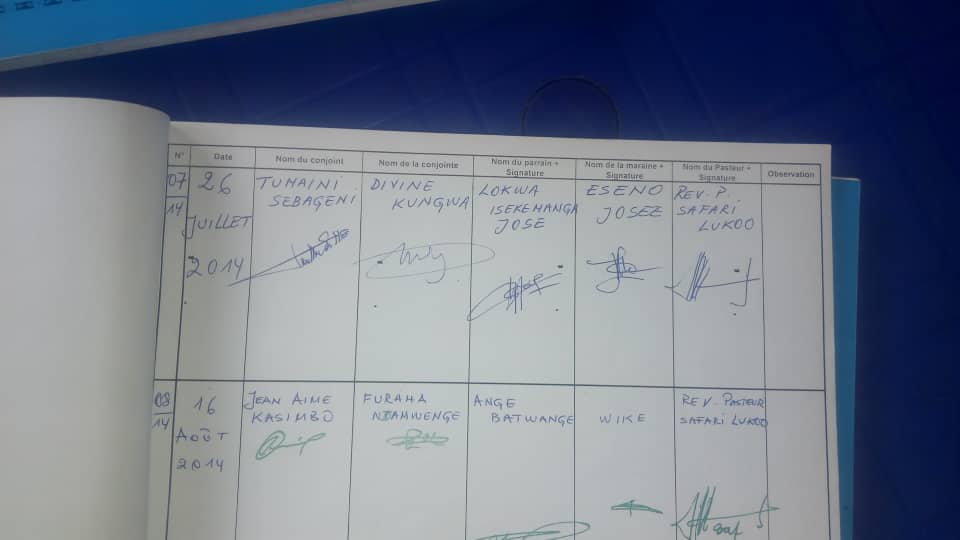 N° Date Nom du conjoint Nom de la conjointe Nom du parrain + Signature Nom de la maraine + Signature Nom du Pasteur + Signature Observation
07
14
26
JUILLET
2014
TUMAINI
SEBAGENI
DIVINE
KUNGWA
LOKWA
ISEKEMANGA
JOSE
ESENO
JOSEE
REV. P.
SAFARI
LUKOO
08
14
16
AOÛT
2014
JEAN AIME
KASIMBO
FURAHA
NTAMWENGE
ANGE
BATWANGE
WIKE
REV. PASTEUR
SAFARI LUKOO